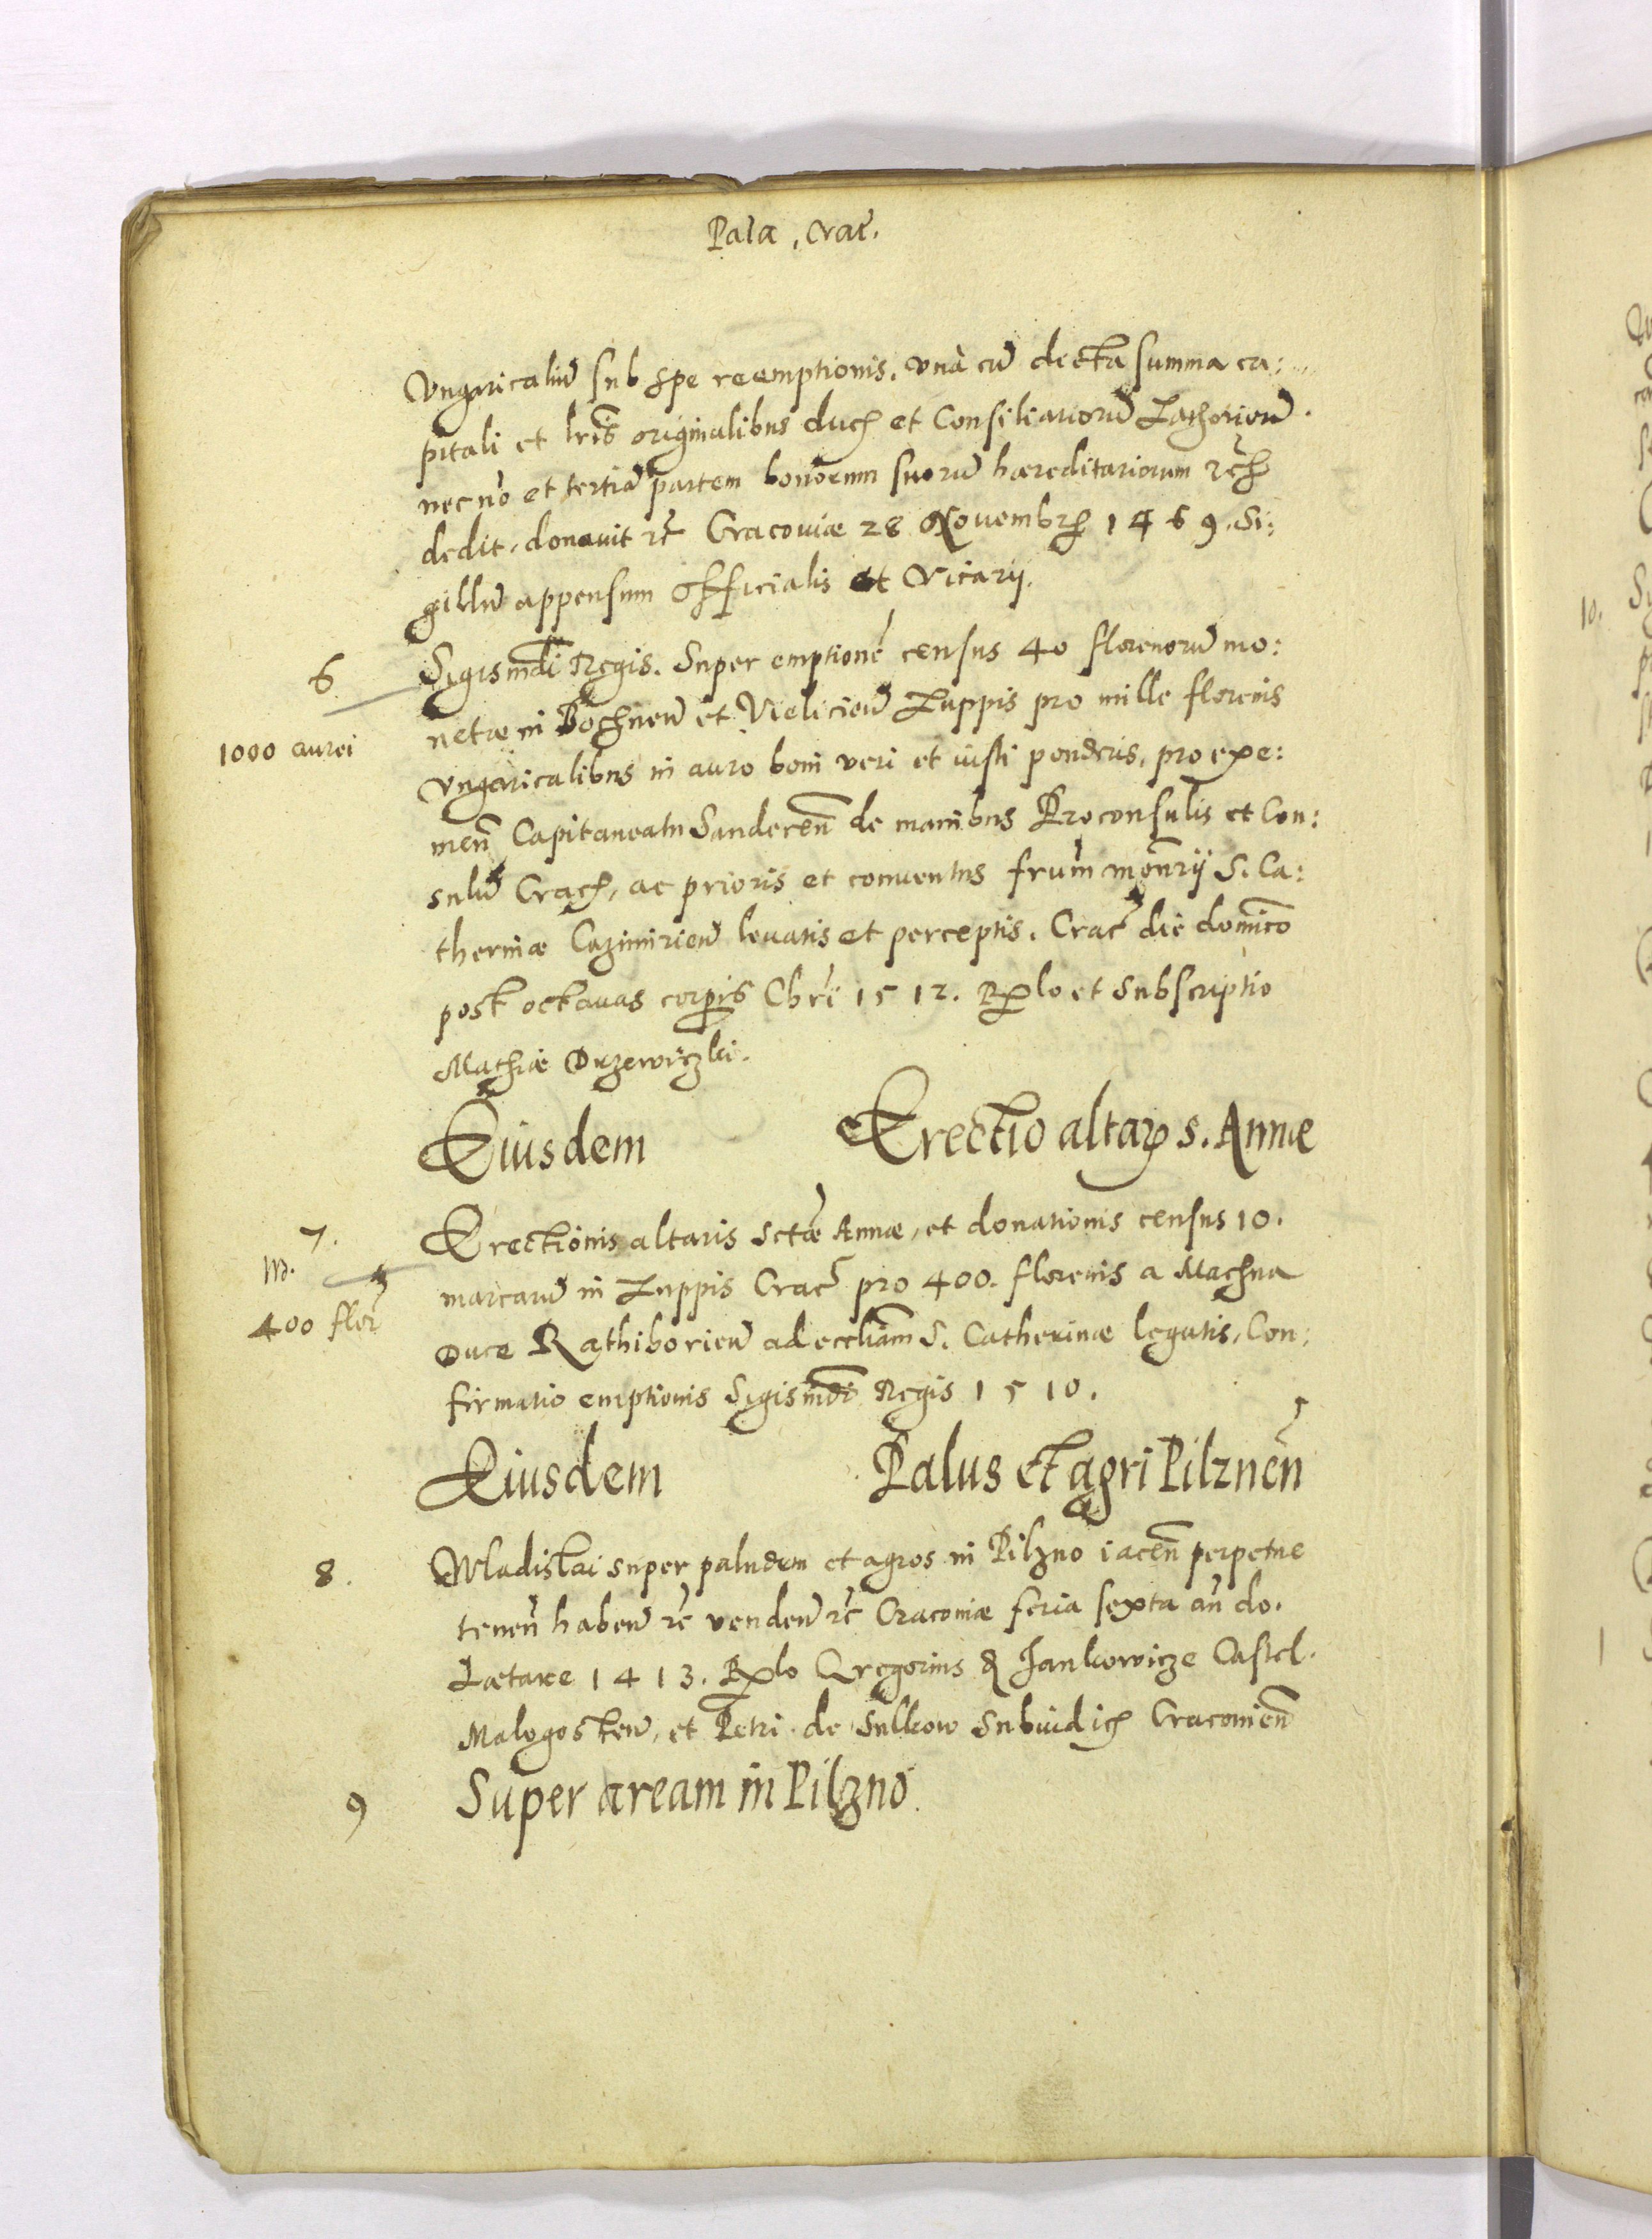 Pala. Crac̃.
Vngaricaliũ sub spe reemptionis. vnà cũ dicta summa ca:
pitali et lr̃is originalibus duc et Consiliariorũ Zathorien̄.
nec nõ et tertiã partem bonorum suorũ hæreditariorum
dedit, donauit etc̃ Cracouiæ 28 Nouembr 1469. Si:
gillũ appensum Officialis et Vicarij.
6. Sigismdi Regis. Super emptionẽ census 40 florenorũ mo:
netæ in Bochnen̄ et Vielicien̄ Zuppis pro mille florenis
1000 aurei
Vngaricalibus in auro boni veri et iusti ponderis, pro exe:
men̄ Capitaneatu Sandecen̄ de manibus Proconsulis et Con:
sulũ Crac, ac prioris et conuentus frũm monrij S. Ca:
therinæ Cazimirien̄ leuatis et perceptis. Crac̃ die domico
post octauas corpris Chri 1512. Rlo et Subscriptio
Mathiæ Drzewiczki.
Eiusdem Erectio altar s. Annæ
7. Erectionis altaris Sctæ Annæ, et donationis census 10.
marcarũ in Zuppis Crac̃ pro 400. florenis a Machna
400 flor̃
Duce Rathiborien̄ ad eccliam S. Catherinæ legatis, Con:
firmatio emptionis Sigismdi Regis 1510.
Eiusdem Palus et agri Pilznen̄
8. Wladislai super paludem et agros in Pilzno iacen̄ perpetue
tenen̄ haben̄ etc̃ venden̄ etc̃ Cracouiæ feria sexta an̄ do.
Lætare 1413. Rlo Gregorius & Jankowicze Castel.
Malogosten̄, et Petri de Sulkow Subiudic Cracouien̄
9 Super aream in Pilzno.
10.